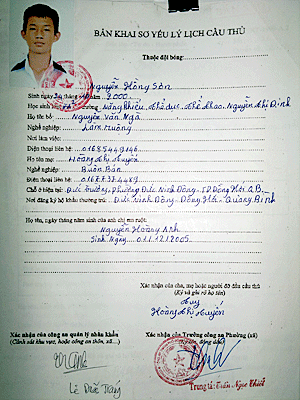 BẢN KHAI SƠ YẾU LÝ LỊCH CẦU THỦ
Thuộc đội bóng:
Nguyễn Hồng Sơn
Sinh ngày tháng 2000
Học sinh trường Năng khiếu thể dục thể thao Nguyễn Chí Định
Họ tên bố: Nguyễn Văn Ngã
Nghề nghiệp: Làm ruộng
Nơi làm việc:
Điện thoại liên hệ: 01685449146
Họ tên mẹ: Hoàng Thị Huyền
Nghề nghiệp: Buôn Bán
Điện thoại liên hệ:
Chỗ ở hiện tại: Đức Trường, Phường Đức Ninh Đông - TP Đồng Hới Q.B
Nơi đăng ký hộ khẩu thường trú: Đức Ninh Đông - Đồng Hới - Quảng Bình
Họ tên, ngày tháng năm sinh của anh chị em ruột:
Nguyễn Hoàng Anh
Sinh Ngày 01.1.2005
Xác nhận của cha, mẹ hoặc người đỡ đầu cầu thủ
(Ký và ghi rõ họ tên)
Huy
Hoàng Thị Huyền
Xác nhận của công an quản lý nhân khẩu
(Cảnh sát khu vực, hoặc công an thôn, xã...)
Xác nhận của Trưởng công an Phường (xã)
Lê Đức
Trung tá: Trần Ngọc